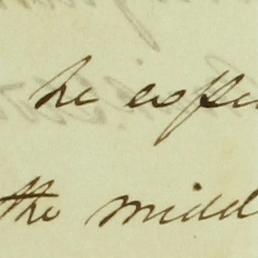 he expe
the midd